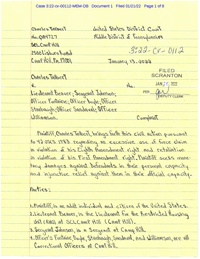 Case 3:22-cv-00112-MEM-DB Document 1 Filed 01/21/22 Page 1 of 8
Charles Talbert United States District Court
Middle District of Pennsylvania
SCI, Camp Hill
Camp Hill, Pa. 17001 January 13, 2022
3:22-CV-0112
FILED
SCRANTON
Charles Talbert
v. No.
JAN 21
Lieutenant Beaver; Sergeant Johnson;
Officer
Officer
Williamson. Complaint
Plaintiff, Charles Talbert, brings forth this civil action pursuant
to 42 USC 1983, regarding an excessive use of force claim
in violation of his Eighth Amendment right and retaliation
in violation of his First Amendment Right. Plaintiff seeks mone-
tary damages against Defendants in their personal capacity,
and injunctive relief against them in their official capacity.
Parties:
1. Plaintiff, is an adult individual and citizen of the United States.
2. Lieutenant Beaver, is the Lieutenant for the Restricted Housing
Unit (RHU) at SCI, Camp Hill (Camp Hill).
3. Sergeant Johnson, is a Sergeant at Camp Hill.
4. Officer's and Williamson, are all
Correctional Officers at Camp Hill.